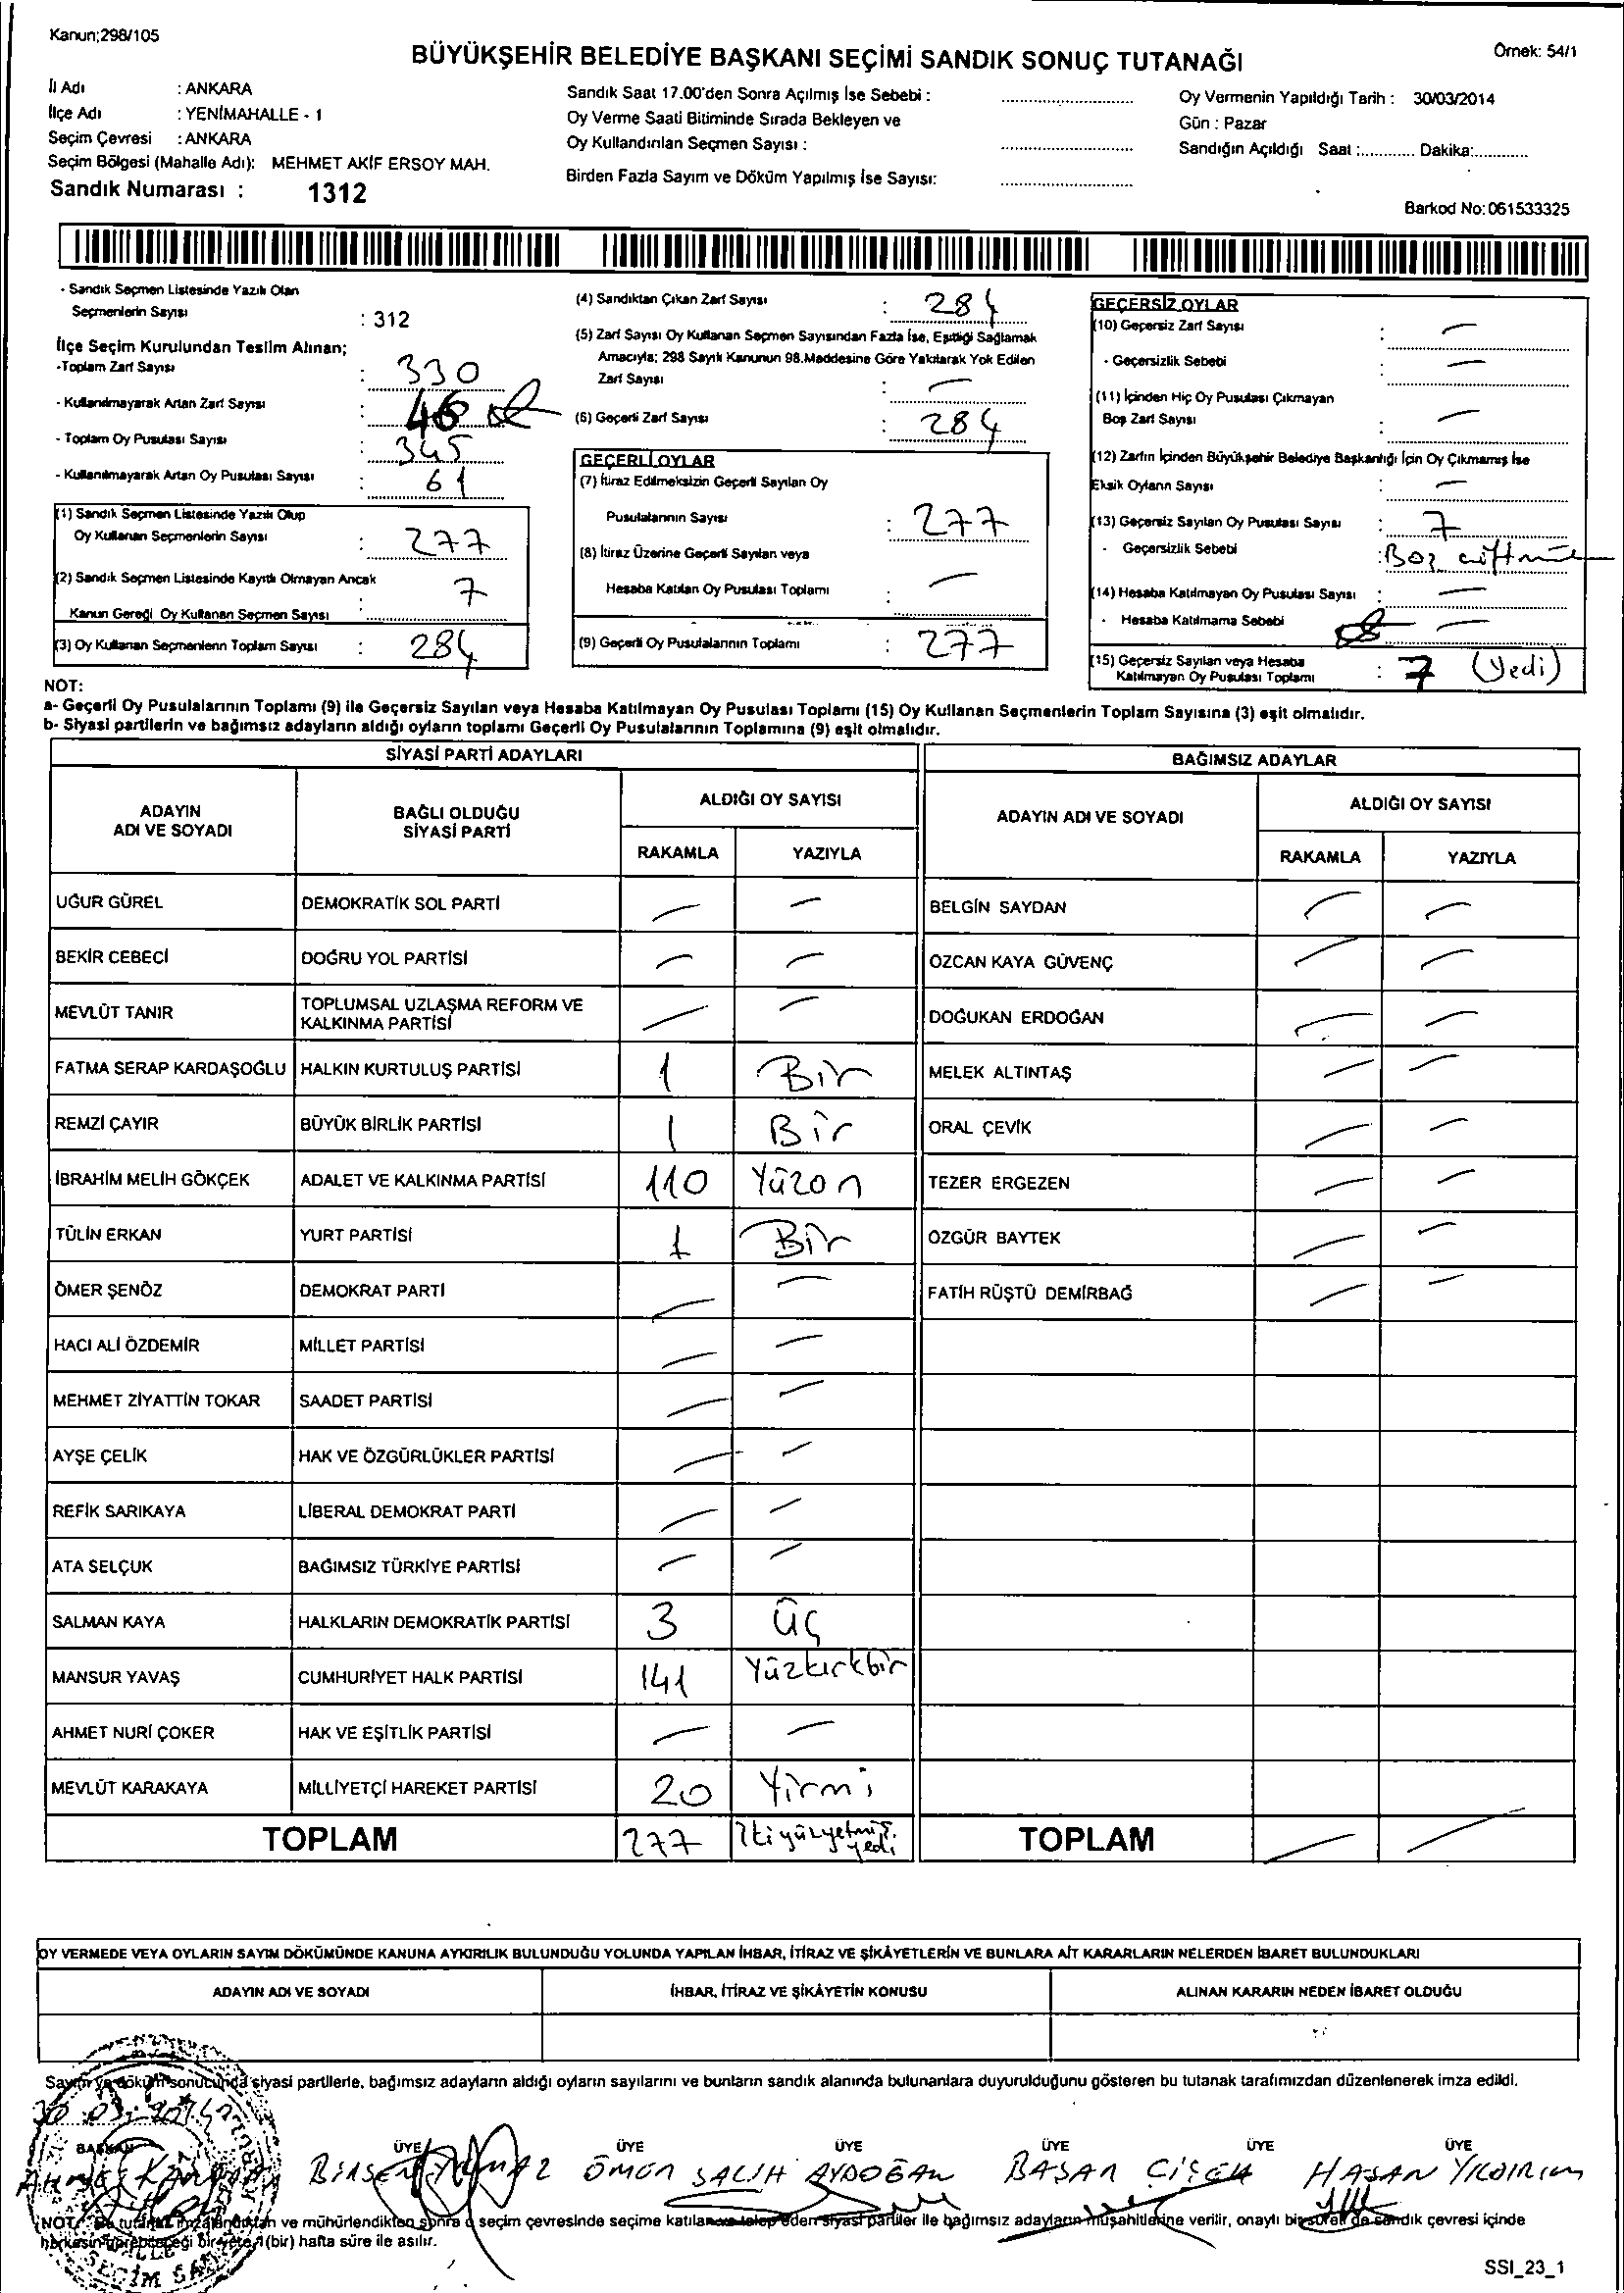 Kanun;298/105
BÜYÜKŞEHİR BELEDİYE BAŞKANI SEÇİMİ SANDIK SONUÇ TUTANAĞI
Örnek: 54/1
İl Adı : ANKARA
İlçe Adı : YENİMAHALLE - 1
Seçim Çevresi : ANKARA
Seçim Bölgesi (Mahalle Adı): MEHMET AKİF ERSOY MAH.
Sandık Numarası : 1312
Sandık Saat 17.00'den Sonra Açılmış İse Sebebi :
Oy Verme Saati Bitiminde Sırada Bekleyen ve
Oy Kullandırılan Seçmen Sayısı :
Birden Fazla Sayım ve Döküm Yapılmış İse Sayısı:
Oy Vermenin Yapıldığı Tarih : 30/03/2014
Gün : Pazar
Sandığın Açıldığı Saat :............ Dakika:............
Barkod No:061533325
- Sandık Seçmen Listesinde Yazılı Olan
Seçmenlerin Sayısı : 312
İlçe Seçim Kurulundan Teslim Alınan;
-Toplam Zarf Sayısı : 330
- Kullanılmayarak Artan Zarf Sayısı : 46
- Toplam Oy Pusulası Sayısı : 345
- Kullanılmayarak Artan Oy Pusulası Sayısı : 61
(1) Sandık Seçmen Listesinde Yazılı Olup
Oy Kullanan Seçmenlerin Sayısı : 277
(2) Sandık Seçmen Listesinde Kayıtlı Olmayan Ancak
Kanun Gereği Oy Kullanan Seçmen Sayısı : 7
(3) Oy Kullanan Seçmenlerin Toplam Sayısı : 284
(4) Sandıktan Çıkan Zarf Sayısı : 284
(5) Zarf Sayısı Oy Kullanan Seçmen Sayısından Fazla İse, Eşitliği Sağlamak
Amacıyla; 298 Sayılı Kanunun 98.Maddesine Göre Yakılarak Yok Edilen
Zarf Sayısı : —
(6) Geçerli Zarf Sayısı : 284
GEÇERLİ OYLAR
(7) İtiraz Edilmeksizin Geçerli Sayılan Oy
Pusulalarının Sayısı : 277
(8) İtiraz Üzerine Geçerli Sayılan veya
Hesaba Katılan Oy Pusulası Toplamı : —
(9) Geçerli Oy Pusulalarının Toplamı : 277
GEÇERSİZ OYLAR
(10) Geçersiz Zarf Sayısı : —
- Geçersizlik Sebebi : —
(11) İçinden Hiç Oy Pusulası Çıkmayan
Boş Zarf Sayısı : —
(12) Zarfın İçinden Büyükşehir Belediye Başkanlığı İçin Oy Çıkmamış İse
Eksik Oyların Sayısı : —
(13) Geçersiz Sayılan Oy Pusulası Sayısı : 7
- Geçersizlik Sebebi : Boş
(14) Hesaba Katılmayan Oy Pusulası Sayısı : —
- Hesaba Katılmama Sebebi —
(15) Geçersiz Sayılan veya Hesaba
Katılmayan Oy Pusulası Toplamı : 7 (Yedi)
NOT:
a- Geçerli Oy Pusulalarının Toplamı (9) ile Geçersiz Sayılan veya Hesaba Katılmayan Oy Pusulası Toplamı (15) Oy Kullanan Seçmenlerin Toplam Sayısına (3) eşit olmalıdır.
b- Siyasi partilerin ve bağımsız adayların aldığı oyların toplamı Geçerli Oy Pusulalarının Toplamına (9) eşit olmalıdır.
SİYASİ PARTİ ADAYLARI
ADAYIN ADI VE SOYADI
BAĞLI OLDUĞU SİYASİ PARTİ
ALDIĞI OY SAYISI
RAKAMLA YAZIYLA
UĞUR GÜREL DEMOKRATİK SOL PARTİ — —
BEKİR CEBECİ DOĞRU YOL PARTİSİ — —
MEVLÜT TANIR TOPLUMSAL UZLAŞMA REFORM VE KALKINMA PARTİSİ — —
FATMA SERAP KARDAŞOĞLU HALKIN KURTULUŞ PARTİSİ 1 Bir
REMZİ ÇAYIR BÜYÜK BİRLİK PARTİSİ 1 Bir
İBRAHİM MELİH GÖKÇEK ADALET VE KALKINMA PARTİSİ 110 Yüzon
TÜLİN ERKAN YURT PARTİSİ 1 Bir
ÖMER ŞENÖZ DEMOKRAT PARTİ — —
HACI ALİ ÖZDEMİR MİLLET PARTİSİ — —
MEHMET ZİYATTİN TOKAR SAADET PARTİSİ — —
AYŞE ÇELİK HAK VE ÖZGÜRLÜKLER PARTİSİ — —
REFİK SARIKAYA LİBERAL DEMOKRAT PARTİ — —
ATA SELÇUK BAĞIMSIZ TÜRKİYE PARTİSİ — —
SALMAN KAYA HALKLARIN DEMOKRATİK PARTİSİ 3 Üç
MANSUR YAVAŞ CUMHURİYET HALK PARTİSİ 141 Yüzkırkbir
AHMET NURİ ÇOKER HAK VE EŞİTLİK PARTİSİ — —
MEVLÜT KARAKAYA MİLLİYETÇİ HAREKET PARTİSİ 20 Yirmi
TOPLAM 277 İkiyüzyetmiş yedi
BAĞIMSIZ ADAYLAR
ADAYIN ADI VE SOYADI
ALDIĞI OY SAYISI
RAKAMLA YAZIYLA
BELGİN SAYDAN — —
ÖZCAN KAYA GÜVENÇ — —
DOĞUKAN ERDOĞAN — —
MELEK ALTINTAŞ — —
ORAL ÇEVİK — —
TEZER ERGEZEN — —
ÖZGÜR BAYTEK — —
FATİH RÜŞTÜ DEMİRBAĞ — —
TOPLAM — —
OY VERMEDE VEYA OYLARIN SAYIM DÖKÜMÜNDE KANUNA AYKIRILIK BULUNDUĞU YOLUNDA YAPILAN İHBAR, İTİRAZ VE ŞİKÂYETLERİN VE BUNLARA AİT KARARLARIN NELERDEN İBARET BULUNDUKLARI
ADAYIN ADI VE SOYADI
İHBAR, İTİRAZ VE ŞİKÂYETİN KONUSU
ALINAN KARARIN NEDEN İBARET OLDUĞU
Sayım ve döküm sonucunda siyasi partilerle, bağımsız adayların aldığı oyların sayılarını ve bunların sandık alanında bulunanlara duyurulduğunu gösteren bu tutanak tarafımızdan düzenlenerek imza edildi.
30.03.2014
BAŞKAN ÜYE ÜYE ÜYE ÜYE ÜYE ÜYE
BİRSEN YILMAZ ÖMER SALİH AYDOĞAN BAŞAR HASAN YILDIRIM
NOT: Bu tutanak imzalandıktan ve mühürlendikten sonra o seçim çevresinde seçime katılan ve talep eden siyasi partiler ile bağımsız adayların müşahitlerine verilir, onaylı bir sureti de sandık çevresi içinde
herkesin görebileceği bir yere 1 (bir) hafta süre ile asılır.
SSI_23_1